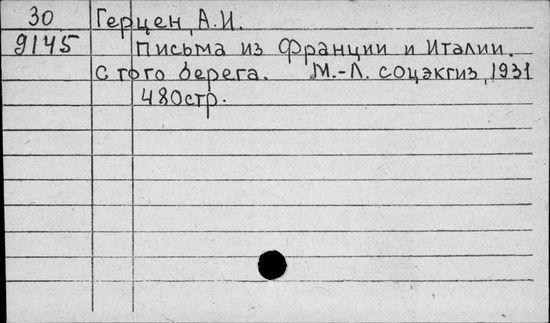 30 Герцен, А.И.
9145 Письма из Франции и Италии.
С того берега. М.-Л. соцэкгиз, 1931
480стр.